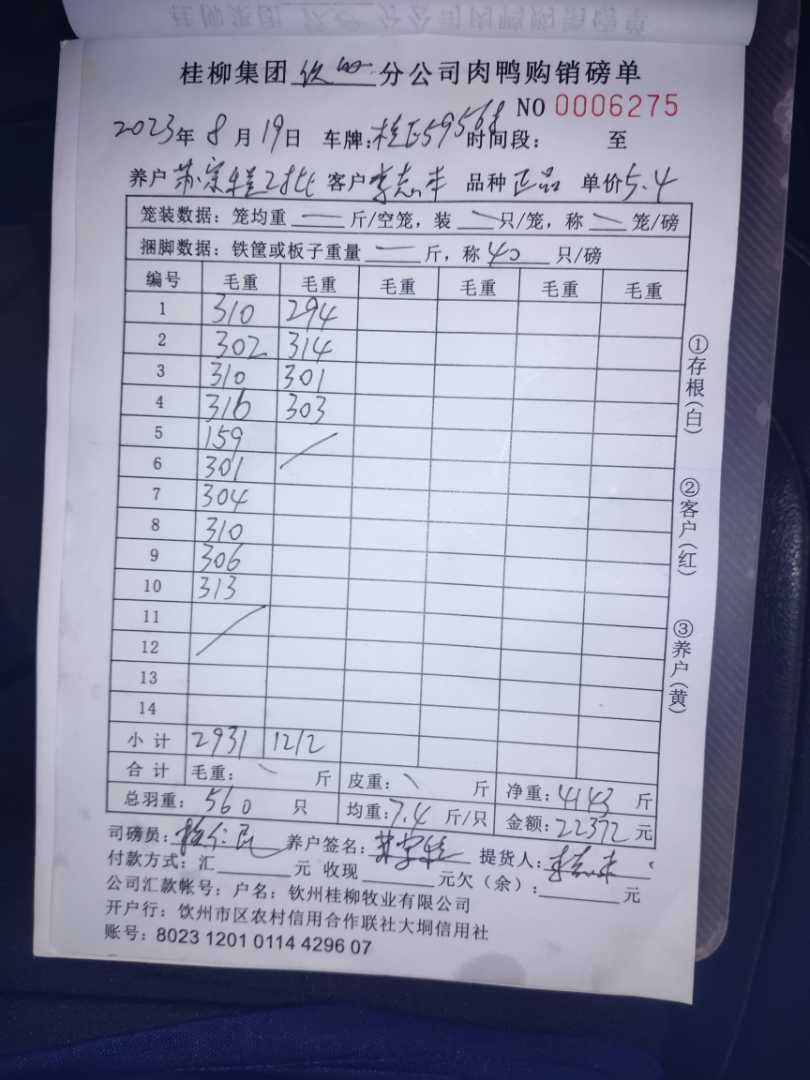 桂柳集团 分公司肉鸭购销磅单
NO 0006275
2023年8月19日 车牌: 59568 时间段: 至
养户 客户 李志丰 品种 正品 单价 5.4
笼装数据: 笼均重 — 斤/空笼, 装 只/笼, 称 笼/磅
捆脚数据: 铁筐或板子重量 — 斤, 称 40 只/磅
编号 毛重 毛重 毛重 毛重 毛重 毛重
1 310 294
2 302 314
3 310 301
4 316 303
5 159
6 301
7 304
8 310
9 306
10 313
11
12
13
14
小计 2931 1212
合计 毛重: 斤 皮重: 斤 净重: 4143 斤
总羽重: 560 只 均重: 7.4 斤/只 金额: 22372 元
司磅员: 养户签名: 提货人:
付款方式: 汇 元 收现 元欠(余): 元
公司汇款帐号: 户名: 钦州桂柳牧业有限公司
开户行: 饮州市区农村信用合作联社大垌信用社
账号: 8023 1201 0114 4296 07
①存根(白)
②客户(红)
③养户(黄)